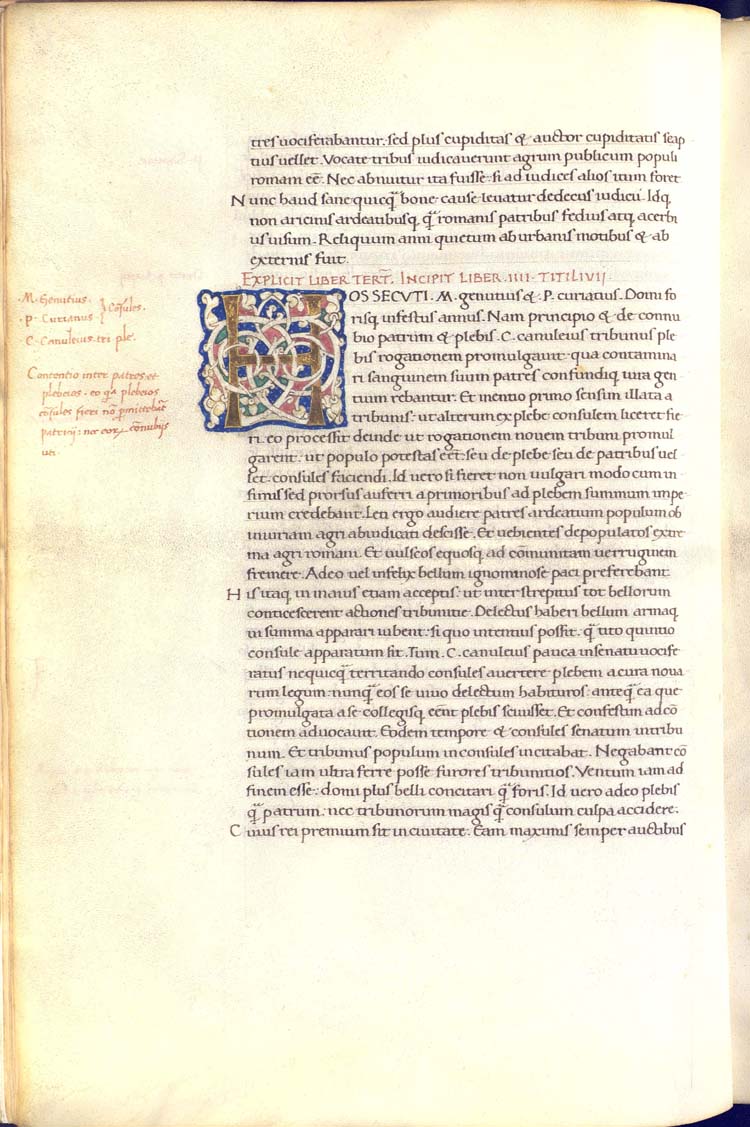 tres uociferabantur. sed plus cupiditas & auctor cupiditatis seap
tius uellet. Vocate tribus iudicauerunt agrum publicum populi
romani eē. Nec abnuitur ita fuisse. si ad iudices alios itum foret
Nunc haud sane quicq̄ bone cause leuatur dedecus iudicii. Idq;
non aricinis ardeatibusq; q̄ romanis patribus fedius atq; acerbi
us uisum. Reliquum anni quietum ab urbanis motibus & ab
externis fuit.
EXPLICIT LIBER TERT. INCIPIT LIBER. IIII. TITI LIVII.
HOS SECVTI. M. genutius & P. curiatius. Domi fo
risq; infestus annus. Nam principio & de connu
bio patrum & plebis. C. canuleius tribunus ple
bis rogationem promulgauit. qua contamina
ri sanguinem suum patres confundiq; iura gen
tium rebantur. Et mentio primo sensim illata a
tribunis: ut alterum ex plebe consulem liceret fie
ri. eo processit deinde ut rogationem nouem tribuni promul
garent. ut populo potestas eēt. seu de plebe seu de patribus uel
let. consules faciendi. Id uero si fieret non uulgari modo cum in
fimis sed prorsus auferri a primoribus ad plebem summum impe
rium credebant. Leti ergo audiere patres ardeatium populum ob
iniuriam agri abiudicati descisse. Et ueientes depopulatos extre
ma agri romani. Et uulscos equosq; ad cōmunitam uerruginem
fremere. Adeo uel infelix bellum ignominose paci preferebant
His itaq; in maius etiam acceptis: ut inter strepitus tot bellorum
conticescerent actiones tribunitie. Delectus haberi bellum armaq;
ui summa apparari iubent. si quo intentius possit. q̄ tito quintio
consule apparatum sit. Tum. C. canuleius pauca in senatu uocife
ratus nequicq̄ territando consules auertere plebem a cura noua
rum legum. nunq̄ eos se uiuo delectum habituros. anteq̄ ea que
promulgata a se collegisq; eent plebis sciuisset. Et confestim ad cō
tionem aduocauit. Eodem tempore & consules senatum in tribu
num. Et tribunus populum in consules incitabat. Negabant cō
sules iam ultra ferre posse furores tribunitios. Ventum iam ad
finem esse: domi plus belli concitari q̄ foris. Id uero adeo plebis
q̄ patrum: nec tribunorum magis q̄ consulum culpa accidere.
Cuius rei premium sit in ciuitate. Eam maximis semper auctibus
M. Genutius.
P. Curianus
Cōsules.
C. Canuleius. tri. ple.
Contentio inter patres et
plebeios. eo q̄ plebeios
cōsules fieri nō pmittebāt
patritij: nec eor. cōnubijs
uti.